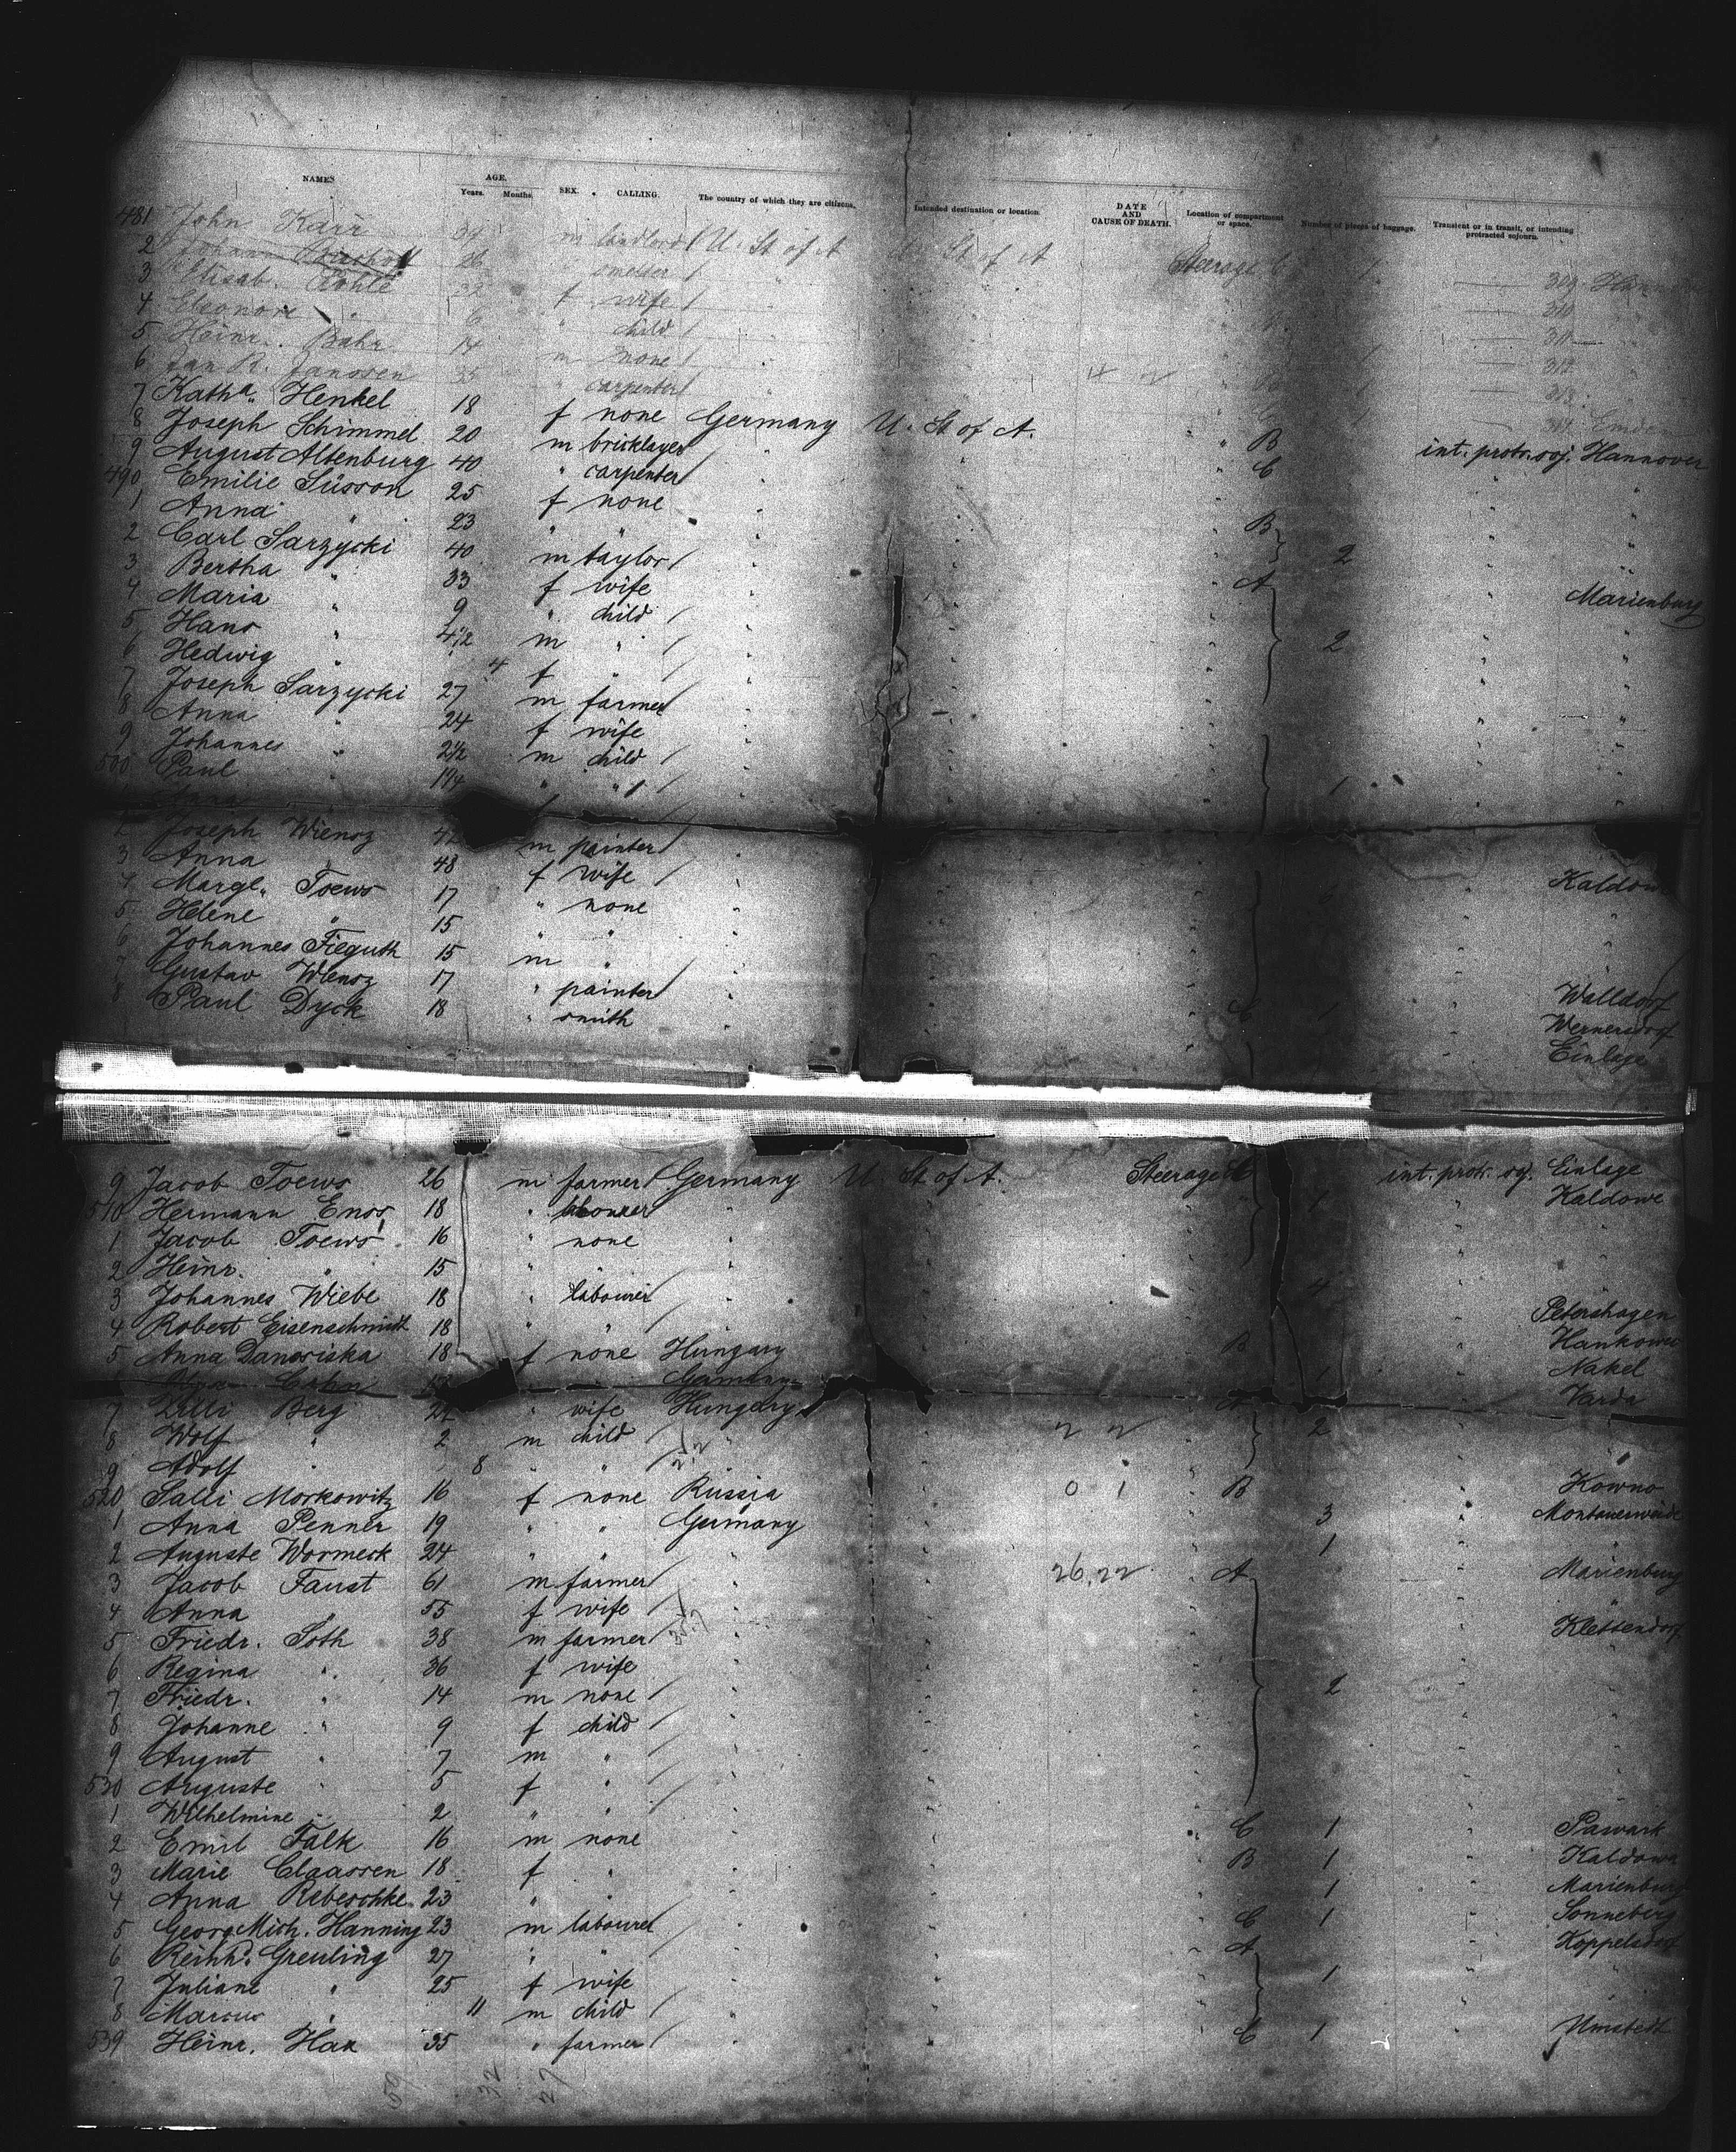 NAMES AGE. Years. Months. SEX. CALLING. The country of which they are citizens. Intended destination or location. DATE AND CAUSE OF DEATH. Location of compartment or space. Number of pieces of baggage. Transient or in transit, or intending protracted sojourn.
481 John Karr 34 m landlord U. St of A U St of A Steerage C 1
2 Johann 26 " smelter 309
3 Elisab. Kohle 32 f wife 310
4 Eleonore " 6 " child 311
5 Heinr. Bahr 14 m none 312
6 Jan R. Janssen 35 " carpenter 313
7 Katha. Henkel 18 f none Germany U. St of A. " B 314 Emden
8 Joseph Schimmel 20 m bricklayer " " C int. protr. soj. Hannover
9 August Altenburg 40 " carpenter " " "
490 Emilie Süsson 25 f none " " B "
1 Anna " 23 " " " " 2 "
2 Carl Sarzycki 40 m taylor " " A " Marienburg
3 Bertha " 33 f wife " "
4 Maria " 9 " child " " 2 "
5 Hans " 4 1/2 m " " "
6 Hedwig " 4 f " " "
7 Joseph Sarzycki 27 m farmer " " "
8 Anna " 24 f wife " " "
9 Johannes " 2 1/2 m child " "
500 Paul " 1 1/4 " " " 1
2 Joseph Wiensz 42 m painter " Kaldowe
3 Anna " 48 f wife "
4 Margt. Toews 17 " none "
5 Helene " 15 " " "
6 Johannes Fieguth 15 m " " Walldorf
7 Gustav Wiensz 17 " painter " C 1 Wernersdorf
8 Paul Dyck 18 " smith " Einlage
9 Jacob Toews 26 m farmer Germany U. St. of A. Steerage C int. protr. soj. Einlage
510 Hermann Enss 18 " labourer 1 Kaldowe
1 Jacob Toews 16 " none "
2 Heinr. " 15 " " "
3 Johannes Wiebe 18 " labourer " 4 Petershagen
4 Robert Eisenschmidt 18 " " "
5 Anna Danoriska 18 f none Hungary B 1 Nakel
Germany Varda
7 Lilli Berg 24 " wife Hungary A 2
8 Wolf " 2 m child "
9 Adolf " 8 " " "
520 Salli Morkowitz 16 f none Russia 0 1 B Kowno
1 Anna Penner 19 " " Germany 3 Montauerweide
2 Auguste Wormeck 24 " " " 1 "
3 Jacob Faust 61 m farmer " 26,22 A Marienburg
4 Anna " 55 f wife " "
5 Friedr. Soth 38 m farmer " Klettendorf
6 Regina " 36 f wife "
7 Friedr. " 14 m none " 2
8 Johanne " 9 f child "
9 August " 7 m " "
530 Auguste " 5 f " "
1 Wilhelmine " 2 " " "
2 Emil Falk 16 m none " C 1 Pawark
3 Marie Claassen 18 f " " B 1 Kaldowe
4 Anna Rebeschke 23 " " " 1 Marienburg
5 Georg Mich. Hanning 23 m labourer " C 1 Sonneberg
6 Reinhd. Greuling 27 " " " A Koppelsdorf
7 Juliane " 25 f wife " 1 "
8 Marcus " 11 m child "
539 Heinr. Hax 35 " farmer " C 1 Umstedt
59 32 27